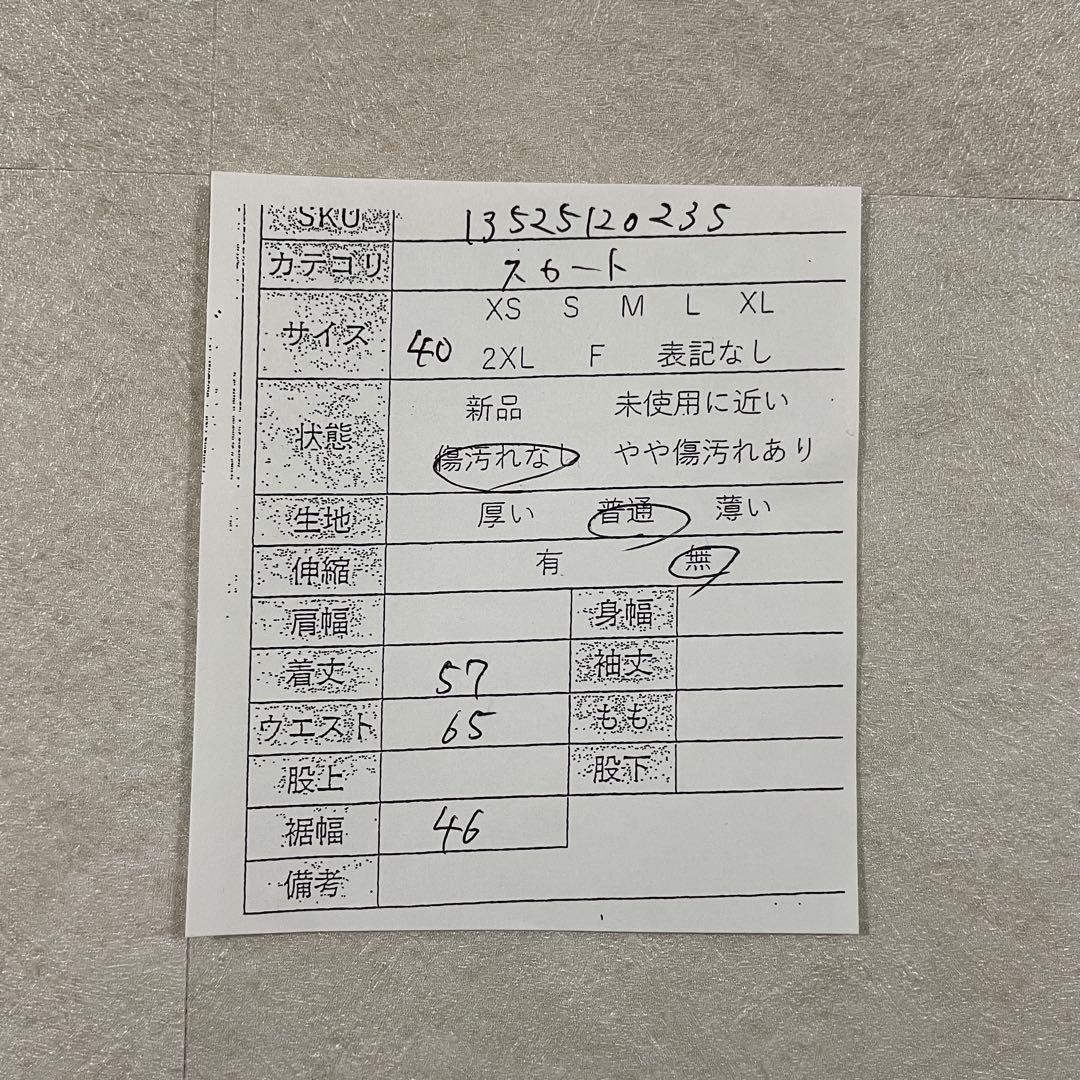 SKU 13525120235
カテゴリ スカート
サイズ XS S M L XL
40 2XL F 表記なし
状態 新品 未使用に近い
傷汚れなし やや傷汚れあり
生地 厚い 普通 薄い
伸縮 有 無
肩幅 身幅
着丈 57 袖丈
ウエスト 65 もも
股上 股下
裾幅 46
備考